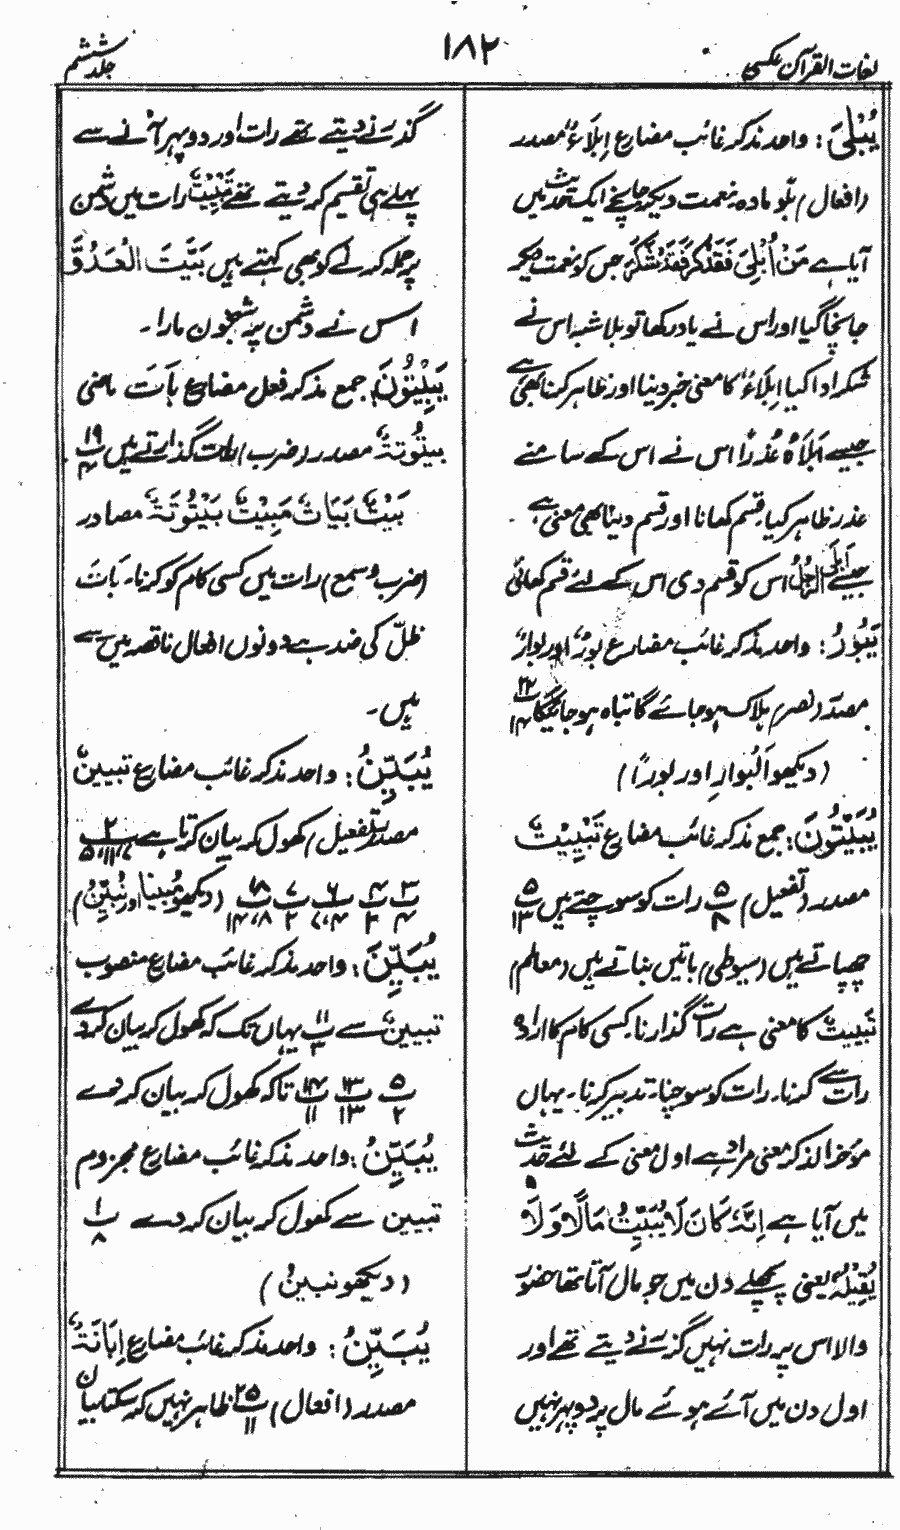 لغات القرآن عکسی
۱۸۲
جلد ششم
یُبْلٰی: واحد مذکر غائب مضارع اِبْلَاءٌ مصدر
(افعال) بَلْو مادہ۔ نعمت دیکر جانچے ایک حدیث میں
آیا ہے مَنْ اُبْلِیَ فَذَکَرَ فَقَدْ شَکَرَ جس کو نعمت دیکر
جانچا گیا اور اس نے یاد رکھا تو بلا شبہ اس نے
شکر ادا کیا اِبْلَاءٌ کا معنی خبر دینا اور ظاہر کرنا بھی ہے
جیسے اَبْلَاہُ عُذْراً اس نے اس کے سامنے
عذر ظاہر کیا۔ قسم کھانا اور قسم دینا بھی معنی ہے
جیسے اَبْلَی الرَّجُلَ اس کو قسم دی اس کے لئے قسم کھائی
یَبُوْرُ: واحد مذکر غائب مضارع بورٌ اور بوارٌ
مصدر (نصر) ہلاک ہو جائے گا تباہ ہو جائیگا ۲۲/۱۴
(دیکھو اَلْبَوارِ اور بوراً)
یُبَیِّتُونَ: جمع مذکر غائب مضارع تَبْیِیْتٌ
مصدر (تفعیل) ۵/۸ رات کو سوچتے ہیں ۵/۱۳
چھپاتے ہیں (سیوطی) باتیں بناتے ہیں (معالم)
تَبْیِیتٌ کا معنی ہے رات گذارنا۔ کسی کام کا ارادہ
رات سے کرنا۔ رات کو سوچنا۔ تدبیر کرنا۔ یہاں
مؤخر الذکر معنی مراد ہے اول معنی کے لئے حدیث
میں آیا ہے اِنَّہٗ کَانَ لَا یُبَیِّتُ مَالًا وَ لَا
یُقِیْلُہٗ یعنی پچھلے دن میں جو مال آتا تھا حضور
والا اس پر رات نہیں گزرنے دیتے تھے اور
اول دن میں آئے ہوئے مال پر دوپہر نہیں
گذرنے دیتے تھے رات اور دوپہر آنے سے
پہلے ہی تقسیم کر دیتے تھے تَبْیِیْتٌ رات میں دشمن
پر حملہ کرنے کو بھی کہتے ہیں بَیَّتَ الْعَدُوَّ
اس نے دشمن پر شبخون مارا۔
یَبِیْتُوْنَ: جمع مذکر فعل مضارع بَاتَ ماضی
بیتُوتۃٌ مصدر (ضرب) رات گذارتے ہیں ۱۹/۴
بَیْتٌ بَیَاتٌ مَبِیْتٌ بَیْتُوتَۃٌ مصادر
(ضرب و سمع) رات میں کسی کام کو کرنا۔ بَاتَ
ظلّ کی ضد ہے دونوں افعال ناقصہ میں سے
ہیں۔
یُبَیِّنُ: واحد مذکر غائب مضارع تبیینٌ
مصدر (تفعیل) کھول کر بیان کرتا ہے ۲/۵،۱۱،۷
۳/۴ ۴/۳ ۶/۷،۱۴ ۷/۲ ۱۸/۸،۱۴ (دیکھو مُبِیْنا اور نُبَیِّنُ)
یُبَیِّنَ: واحد مذکر غائب مضارع منصوب
تبیینٌ سے ۱۱/۳ یہاں تک کہ کھول کر بیان کر دے
۵/۲ ۱۳/۱۳ ۱۴/۱۱ تاکہ کھول کر بیان کر دے
یُبَیِّنْ: واحد مذکر غائب مضارع مجزوم
تبیین سے کھول کر بیان کر دے ۱/۸
(دیکھو نبینُ)
یُبِیْنُ: واحد مذکر غائب مضارع اِبَانَۃٌ
مصدر (افعال) ۲۵/۱۱ ظاہر نہیں کر سکتا بیان